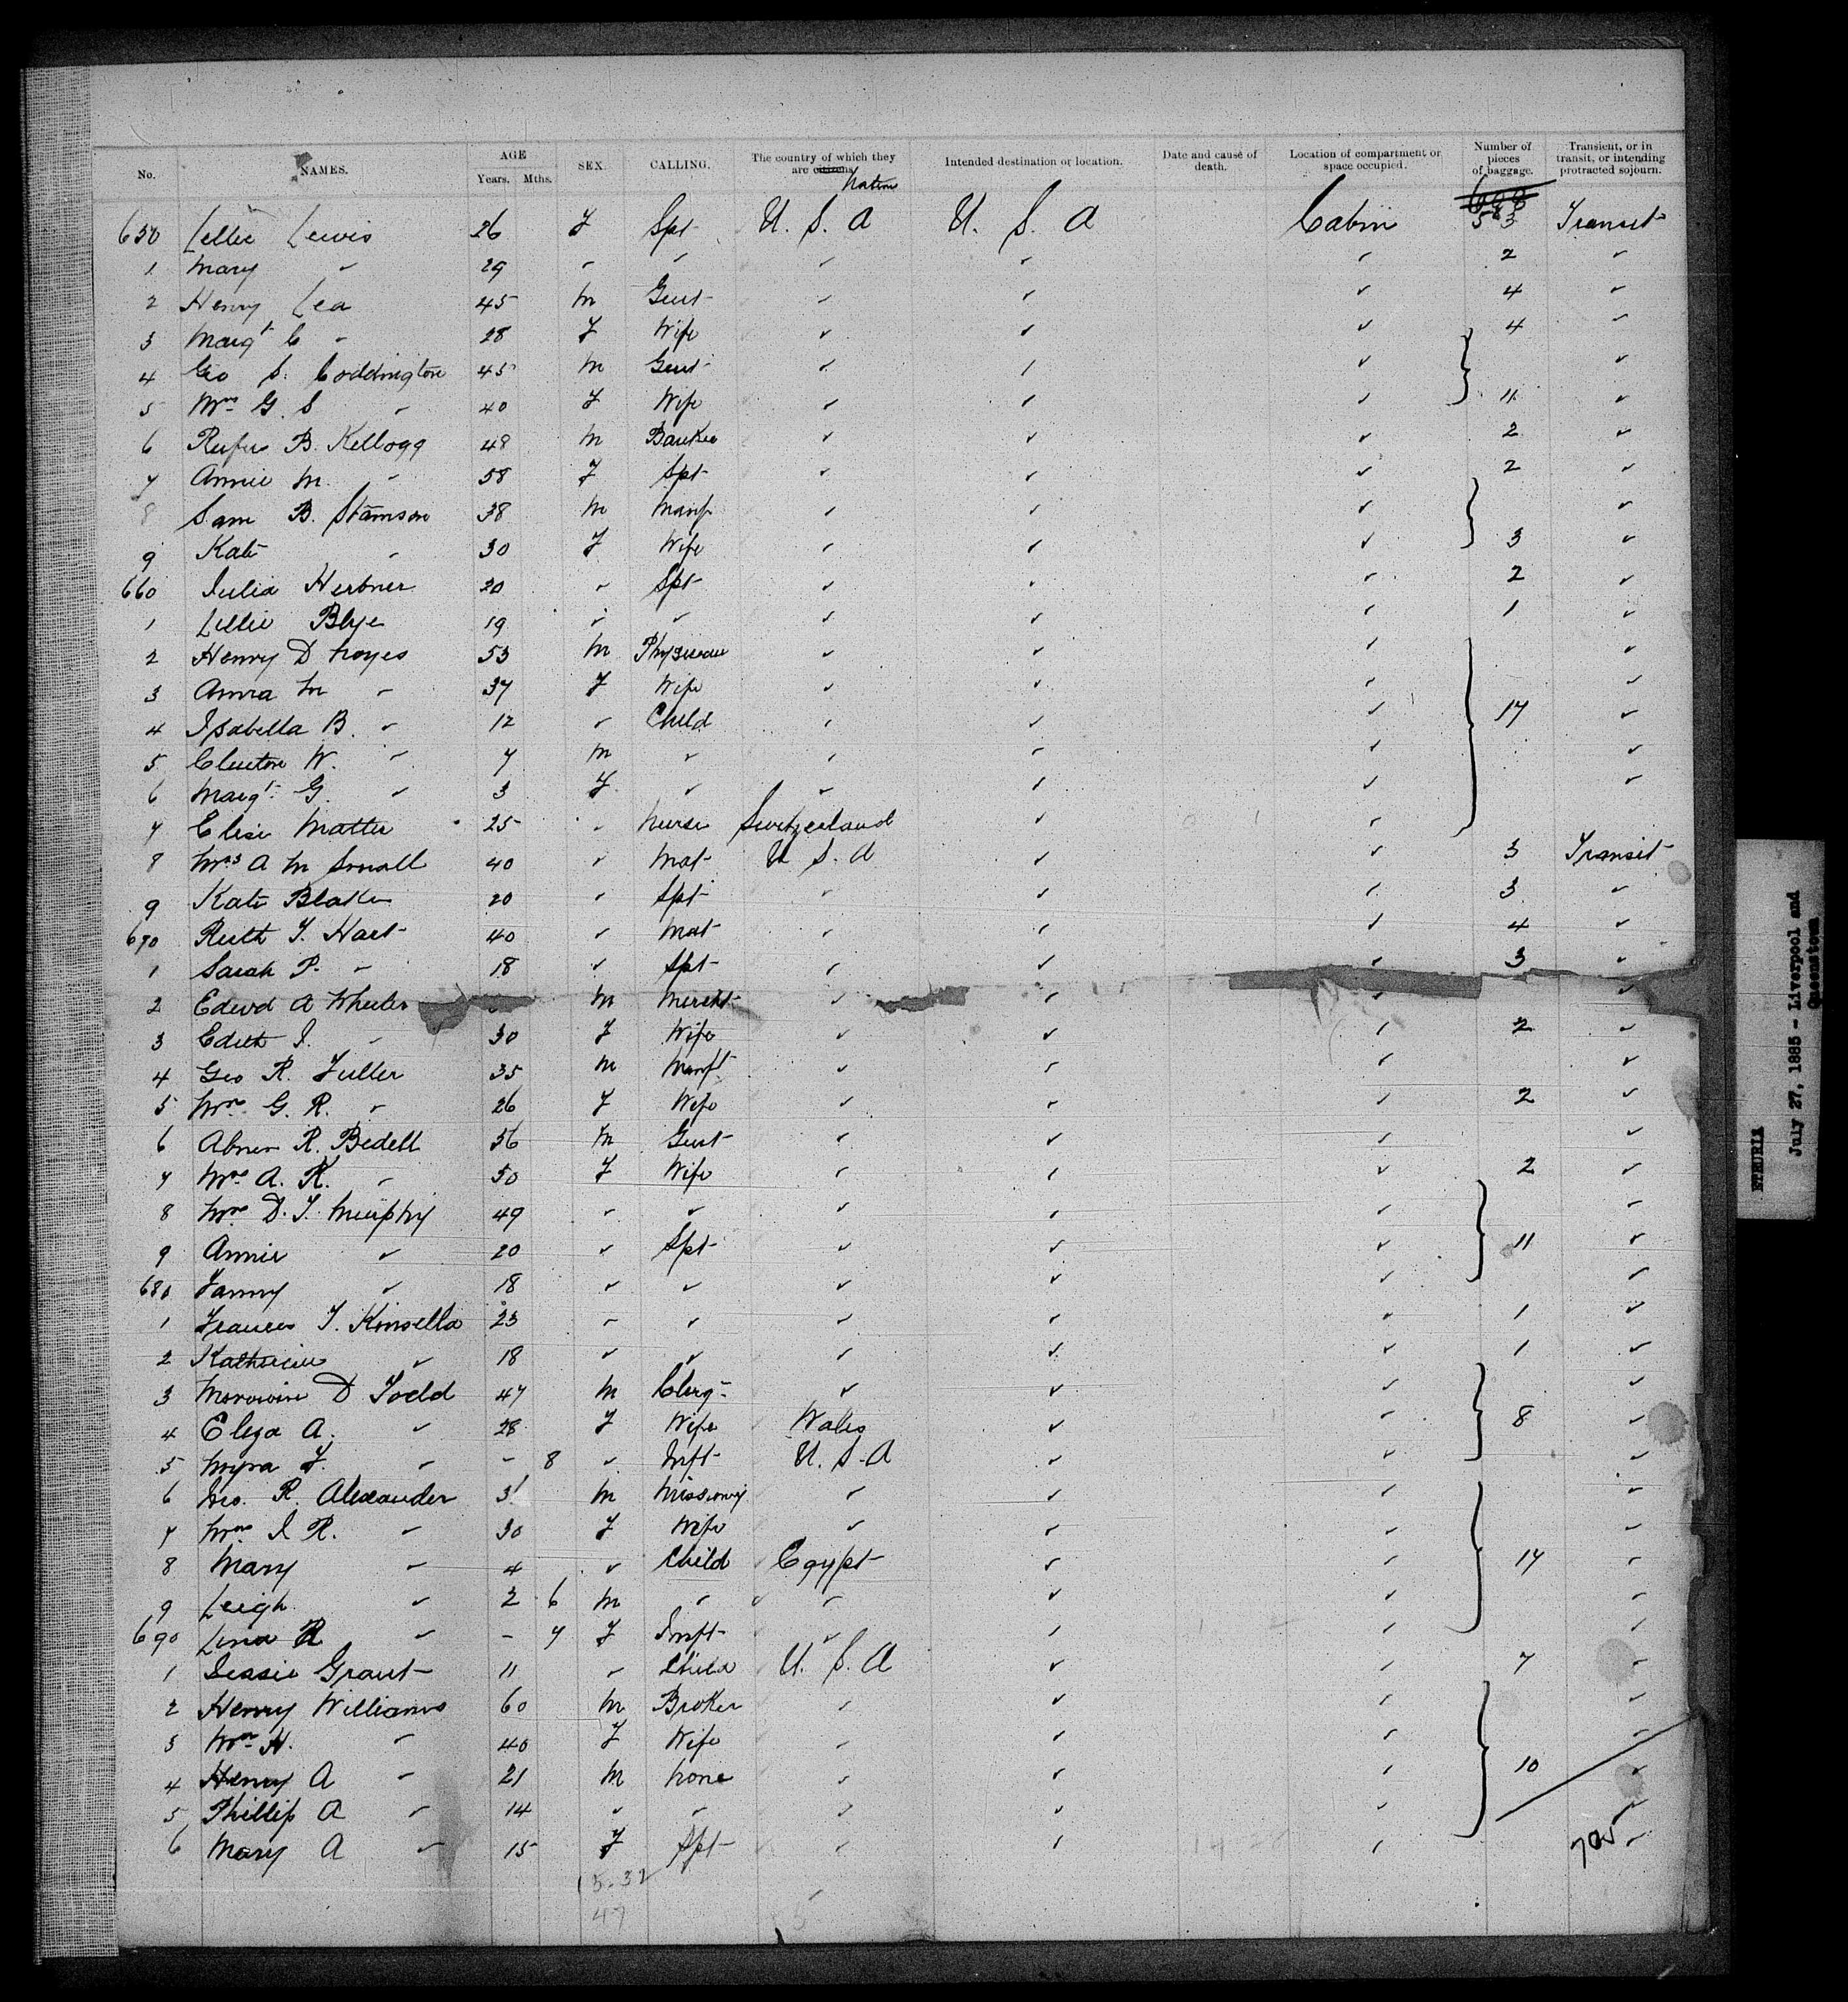 No. NAMES. AGE Years. Mths. SEX. CALLING. The country of which they are citizens. Native Intended destination or location. Date and cause of death. Location of compartment or space occupied. Number of pieces of baggage. Transient, or in transit, or intending protracted sojourn.
650 Lillie Lewis 26 F Spt U. S. A U. S. A Cabin 3 Transit
1 Mary " 29 " " " " " 2 "
2 Henry Lea 45 M Gent " " " 4 "
3 Margt C " 28 F Wife " " " 4 "
4 Geo S. Coddington 45 M Gent " " " "
5 Mrs G. S " 40 F Wife " " " 11 "
6 Rufus B. Kellogg 48 M Banker " " " 2 "
7 Annie M. " 58 F Spt " " " 2 "
8 Sam B. Stamson 38 M Manf " " " "
9 Kate " 30 F Wife " " " 3 "
660 Julia Herbner 20 " Spt " " " 2 "
1 Lillie Blye 19 " " " " " 1 "
2 Henry D Noyes 53 M Physician " " " "
3 Anna M " 37 F Wife " " " "
4 Isabella B. " 12 " Child " " " 17 "
5 Clinton W. " 7 M " " " " "
6 Margt. G. " 3 F " " " " "
7 Elise Matter 25 " Nurse Switzerland " "
8 Mrs A M Small 40 " Mat U S. A " " 3 Transit
9 Kate Blake 20 " Spt " " " 3 "
670 Ruth T. Hart 40 " Mat " " " 4 "
1 Sarah P. " 18 " Spt " " " 3 "
2 Edwd A Wheeler M Mercht " " " "
3 Edith I. " 30 F Wife " " " 2 "
4 Geo R. Fuller 35 M Manft " " " "
5 Mrs G. R. " 26 F Wife " " " 2 "
6 Abner R. Bedell 56 M Gent " " " "
7 Mrs A. R. " 50 F Wife " " " 2 "
8 Mrs D. T. Murphy 49 " " " " " "
9 Annie " 20 " Spt " " " 11 "
680 Fanny " 18 " " " " " "
1 Frances T. Kinsella 23 " " " " " 1 "
2 Katherine " 18 " " " " " 1 "
3 D Todd 47 M Clerg " " " "
4 Eliza A. " 28 F Wife Wales " " 8 "
5 Myra F. " - 8 " Inft U. S. A " " "
6 Jno. R. Alexander 3 M Missionary " " " "
7 Mrs J R. " 30 F Wife " " " "
8 Mary " 4 " Child Egypt " " 14 "
9 Leigh " 2 6 M " " " " "
690 Lena R " - 7 F Inft " " " "
1 Jessie Grant 11 " Child U. S. A " " 7 "
2 Henry Williams 60 M Broker " " " "
3 Mrs H. " 40 F Wife " " " "
4 Henry A " 21 M None " " " 10 "
5 Phillip A " 14 " " " " " "
6 Mary A " 15 F Spt " " " "
705
5.32
47
ETRURIA
July 27, 1885 - Liverpool and
Queenstown